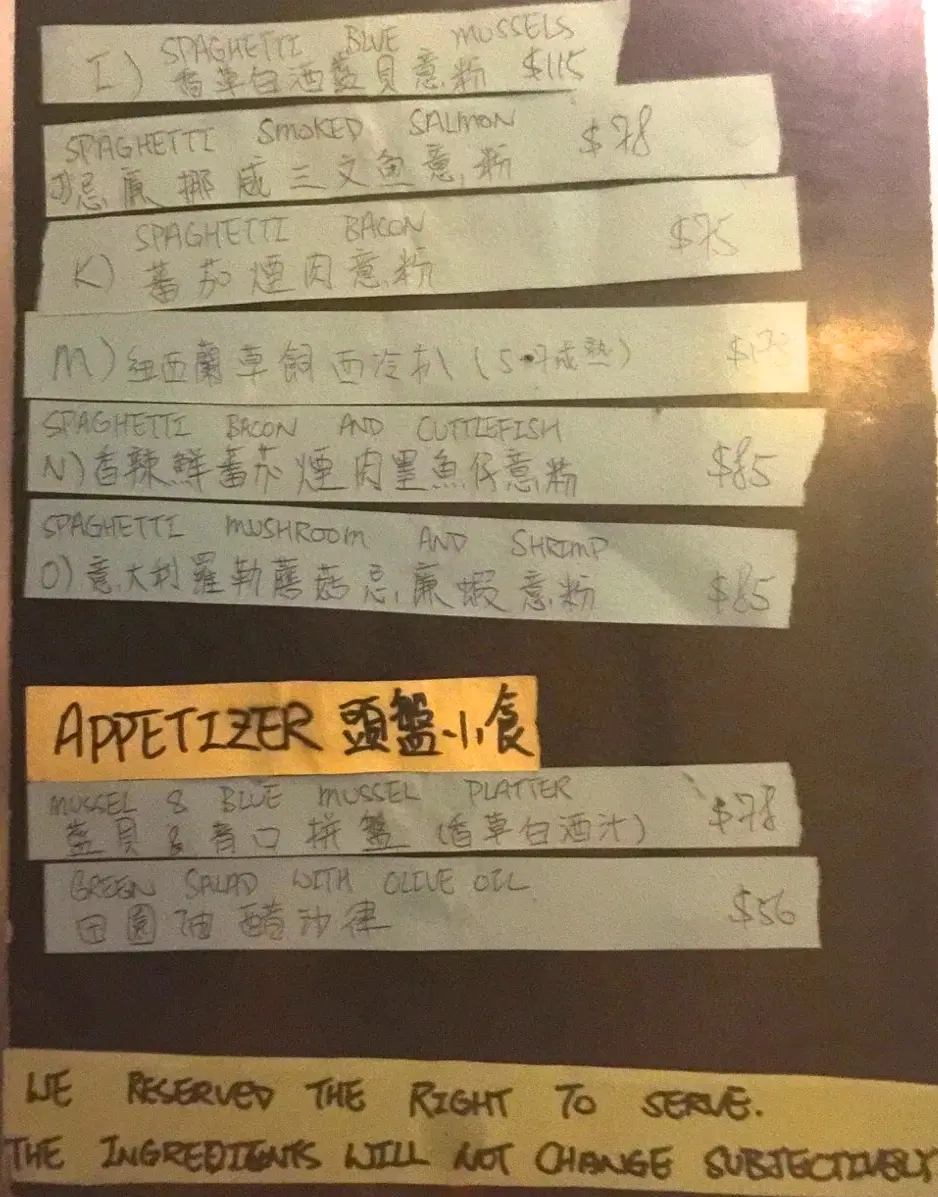 SPAGHETTI BLUE MUSSELS
I)香草白酒藍貝意粉 $115
SPAGHETTI SMOKED SALMON $78
J)忌廉挪威三文魚意粉
SPAGHETTI BACON $75
K) 蕃茄煙肉意粉
M) 紐西蘭草飼西冷扒 (5-7成熟)
SPAGHETTI BACON AND CUTTLEFISH
N) 香辣鮮蕃茄煙肉墨魚仔意粉 $85
SPAGHETTI MUSHROOM AND SHRIMP
O) 意大利羅勒蘑菇忌廉蝦意粉 $85
APPETIZER 頭盤小食
MUSSEL & BLUE MUSSEL PLATTER $78
藍貝 & 青口拼盤 (香草白酒汁)
GREEN SALAD WITH OLIVE OIL $56
田園油醋沙律
WE RESERVED THE RIGHT TO SERVE.
THE INGREDIENTS WILL NOT CHANGE SUBJECTIVELY